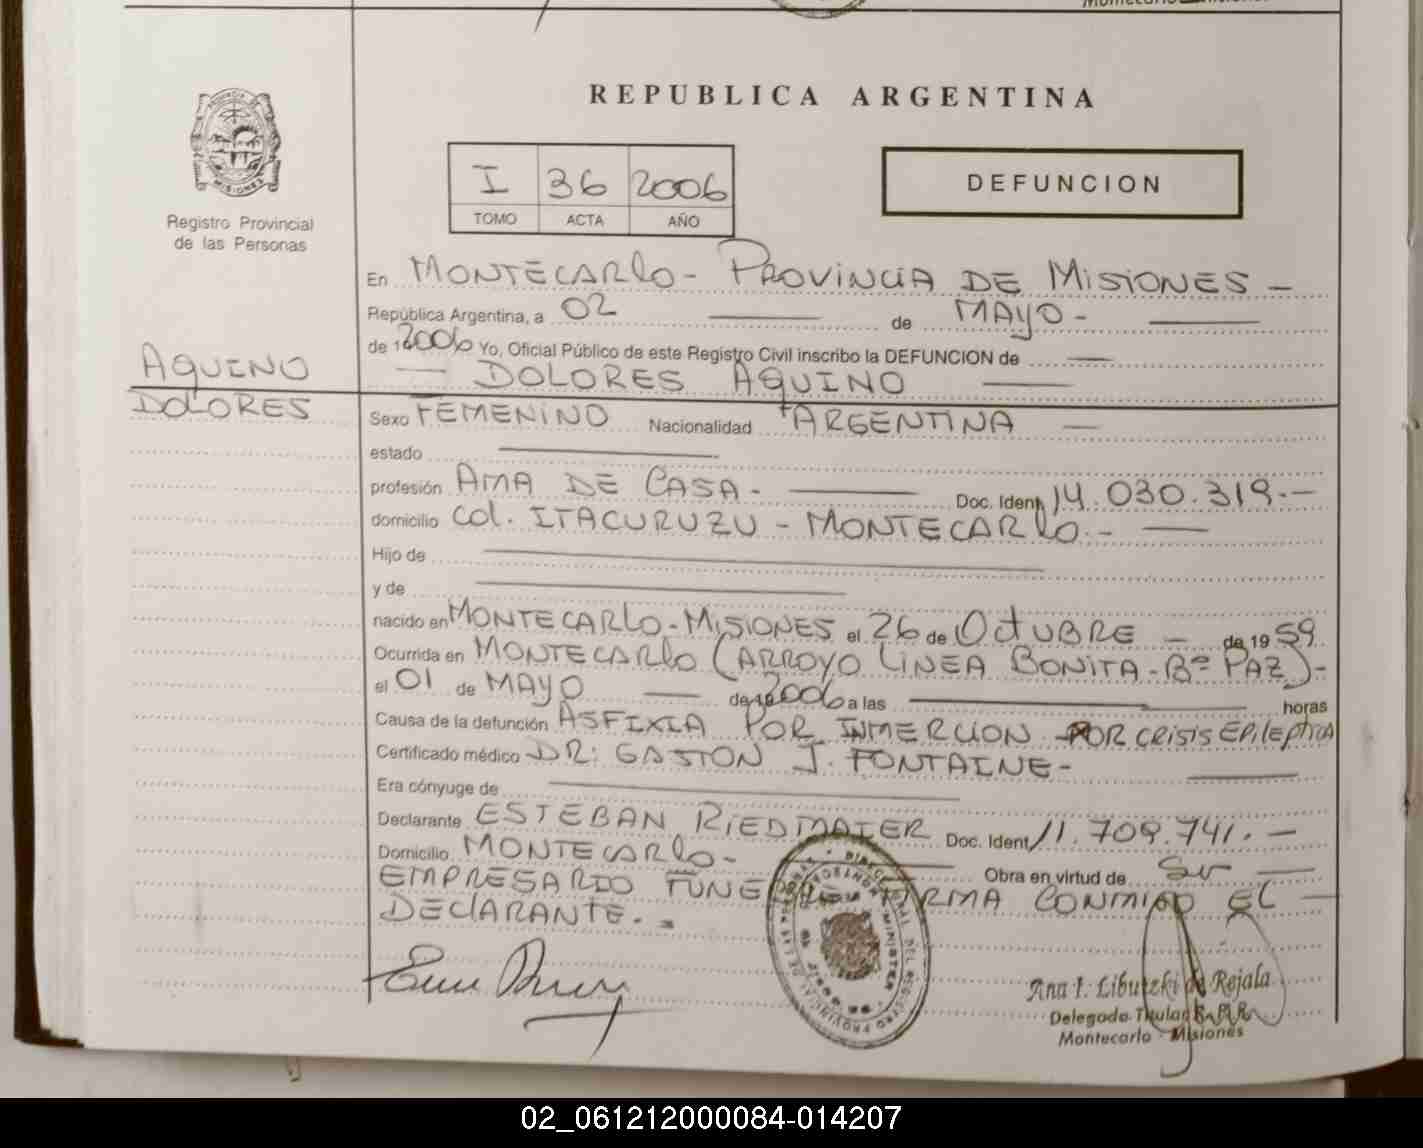 REPUBLICA ARGENTINA
I 36 2006
TOMO ACTA AÑO
DEFUNCION
Registro Provincial
de las Personas
En MONTECARLO - PROVINCIA DE MISIONES -
República Argentina, a 02 de MAYO -
de 12006 Yo, Oficial Público de este Registro Civil inscribo la DEFUNCION de
AQUINO
DOLORES
DOLORES AQUINO
Sexo FEMENINO Nacionalidad ARGENTINA
estado
profesión AMA DE CASA - Doc. Ident. 14.030.319.-
domicilio COL. ITACURUZU - MONTECARLO.-
Hijo de
y de
nacido en MONTECARLO - MISIONES el 26 de OCTUBRE - de 1959.
Ocurrida en MONTECARLO (ARROYO LINEA BONITA - Bº PAZ) -
el 01 de MAYO de 2006 a las horas
Causa de la defunción ASFIXIA POR INMERCION POR CRISIS EPILEPTICA
Certificado médico DR: GASTON J. FONTAINE -
Era cónyuge de
Declarante ESTEBAN RIEDMAIER Doc. Ident. 11.709.741.-
Domicilio MONTECARLO -
Obra en virtud de SU
EMPRESARIO FUNEBRE FIRMA CONMIGO EL
DECLARANTE.-
Ana I. Libutzki de Rejala
Delegada Titular R.P.P.
Montecarlo - Misiones
02_061212000084-014207